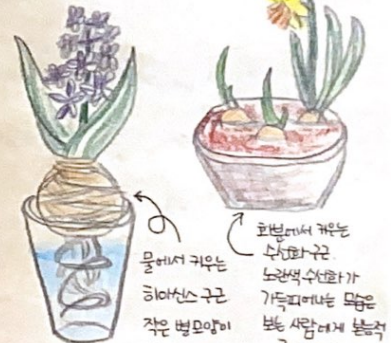 물에서 키우는
히아신스 구근
작은 병모양이
화분에서 키우는
수선화 구근.
노란색 수선화가
가득피어나는 모습은
보는 사람에게